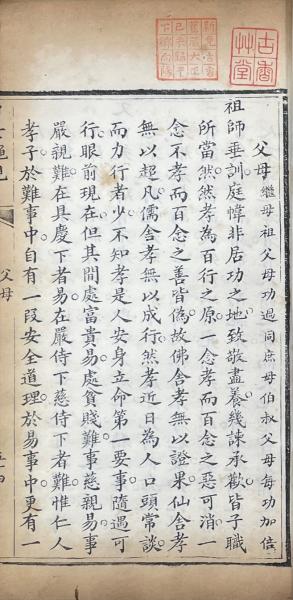 古香艸堂
父母繼母祖父母功過同庶母伯叔父母每功加倍
祖師垂訓庭幃非居功之地致敬盡養幾諫承歡皆子職
所當然然孝為百行之原一念孝而百念之惡可消一
念不孝而百念之善皆偽故佛舍孝無以證果仙舍孝
無以超凡儒舍孝無以成行然孝近日為人口頭常談
而力行者少不知孝是人安身立命第一要事隨遇可
行眼前現在但其間處富貴易處貧賤難事慈親易事
嚴親難在具慶下者易在嚴侍下慈侍下者難惟仁人
孝子於難事中自有一段安全道理於易事中更有一
父母